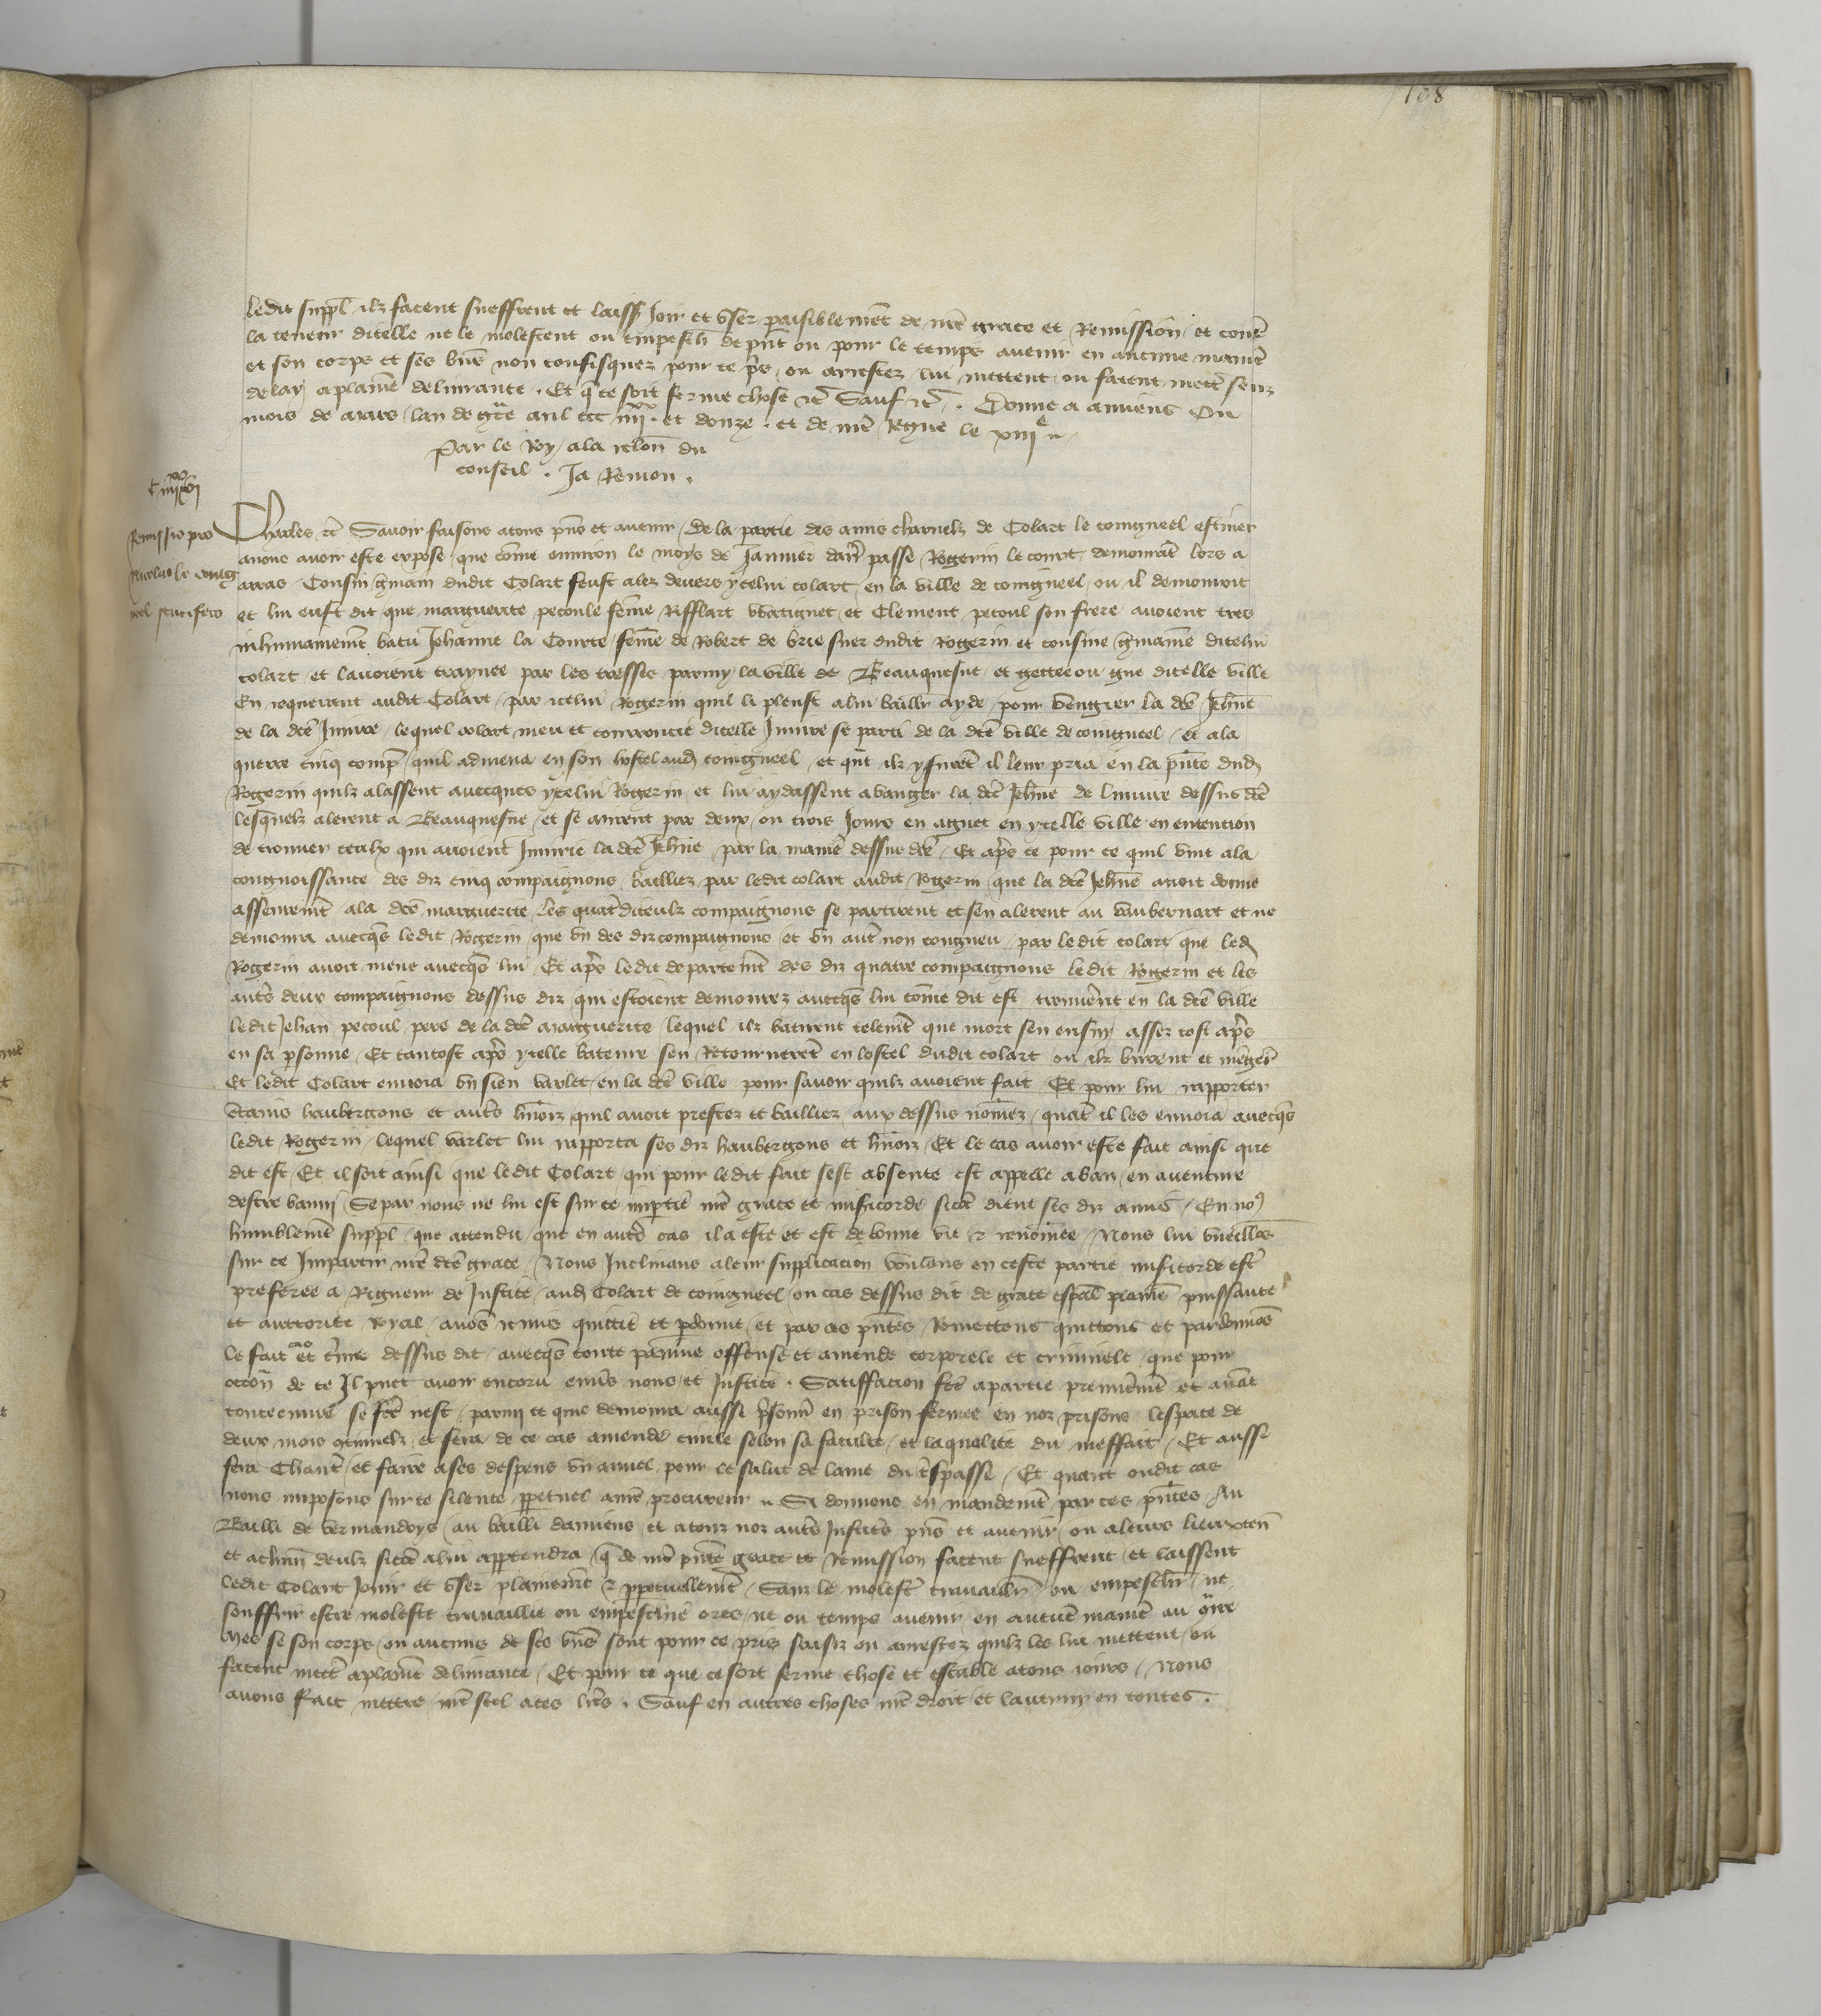 108
ledit suppl ilz facent sueffrent et laiss Joir et user paisiblement de nre grace et Remission et coment
la teneur dicelle ne le molestent ou empesch de pnt ou pour le temps avenir en aucune maniere
et son corps et ses biens non confisquez pour ce pris ou arrestez lui mettent ou facent mett senz
delay a plaine delivrance . Et q ce soit ferme chose etc Sauf etc . Donne a amiens Ou
mois de mars lan de grace mil ccc iiiixx et douze . et de nre Regne le xiiie
Par le Roy a la relon du
conseil . Ja Remon .
C iiiixx xvi
Remissio pro
Nicolao le coing
neel scutifero
Charles etc Savoir faisons a tous pns et avenir de la partie des amis charnelz de Colart le coingneel escuier
a nous avoir este expose que come environ le moys de Janvier darr passe Rogerin le court demourant lors a
arras Cousin gmain dudit Colart feust alez devers ycelui colart en la ville de coingneel ou il demouroit
et lui eust dit que marguerite pecoule feme Rifflart Watignet et Clement pecoul son frere avoient tres
inhumainement batu Jehanne la Courte feme de Robert de brie suer dudit Rogerin et cousine gmaine dicelui
colart et lavoient traynee par les tresses parmy la ville de Beauquesne et gettee ou gue dicelle ville
En requerant audit Colart par icelui Rogerin quil li pleust a lui baillr ayde pour vengier la dce Jehne
de la dce Jniure lequel colart meu et courroucie dicelle Jniure se parti de la dce ville de coingneel et ala
querre cinq comp quil admena en son hostel aud coingneel et qnt ilz y furent il leur pria en la pnce dud
Rogerin quilz alassent avecques ycelui Rogerin et lui aydassent a vanger la dce Jehne de liniure dessus dce
lesquelz alerent a Beauquesne et se mirent par deux ou trois Jours en aguet en ycelle ville en entencion
de trouver ceulx qui avoient Jniurie la dce Jehne par la maniere dessus dce Et apres ce pour ce quil vint a la
congnoissance des diz cinq compaignons bailliez par ledit colart audit Rogerin que la dce Jehne avoit donne
asseurement a la dce marguerite les quatre diceulz compaignons se partirent et sen alerent au vaubernart et ne
demoura avecqs ledit Rogerin que un des diz compaignons et un autre non congneu par ledit colart que led
Rogerin avoit mene avecqs lui Et apres ledit departement des diz quatre compaignons ledit Rogerin et les
autres deux compaignons dessus diz qui estoient demourez avecqs lui come dit est trouverent en la dce ville
ledit Jehan pecoul pere de la dce marguerite lequel ilz batirent telement que mort sen ensuy assez tost apres
en sa psonne Et tantost apres ycelle bateure sen Retournerent en lostel dudit colart ou ilz burent et mengerent
Et ledit Colart envoia un sien varlet en la dce ville pour savoir quilz avoient fait Et pour lui rapporter
ctains haubergons et autres harnois quil avoit prestez et bailliez aux dessus nomez quant il les envoia avecqs
ledit Rogerin lequel varlet lui rapporta ses diz haubergons et harnois Et le cas avoir este fait ainsi que
dit est Et il soit ainsi que ledit Colart qui pour ledit fait sest absente est appelle a ban en aventure
destre banni Se par nous ne lui est sur ce impartie nre grace et misericorde sicome dient ses diz amis En no9
humblement suppl que attendu que en autres cas il a este et est de bonne vie et renomee Nous lui vueillons
sur ce Jmpartir nre dce grace Nous Jnclinans a leur supplicacion voulans en ceste partie misericorde estre
preferee a Rigueur de Justice aud Colart de coingneel ou cas dessus dit de grace espal plaine puissance
et auctorite royal avons remis quittie et pdonne et par ces pntes Remettons quittons et pardonnons
le fait cas et crime dessus dit avecqs toute paine offense et amende corporele et criminele que pour
occon de ce Jl puet avoir encoru envers nous et Justice . Satiffacion fce a partie premierement et avant
toute euvre se fce nest parmi ce que demoura aussi psonn en prison fermee en noz prisons lespace de
deux mois continuelz et fera de ce cas amende civile selon sa faculte et la qualite du meffait Et aussi
fera Chanter et faire a ses despens un annel pour le salut de lame du tspasse Et quant oudit cas
nous imposons sur ce silence ppetuel a nre procureur Si donnons en mandement par ces pntes Au
Bailli de vermandoys au bailli damiens et a touz noz autres Justicrs pns et avenir ou a leurs lieuxten
et a chun deulz sicome a lui apptendra q de nre pnte grace et Remission facent sueffrent et laissent
ledit Colart Jouir et user plainement et ppetuellement Sanz le molester travaillr ou empeschr ne
souffrir estre moleste travaillie ou empeschie ores ne ou temps avenir en aucune maniere au contraire
Mes se son corps ou aucuns de ses biens sont pour ce pris saisiz ou arrestez quilz les lui mettent ou
facent mettre a plaine delivrance Et pour ce que ce soit ferme chose et estable a tous iours Nous
avons Fait mettre nre seel a ces lres . Sauf en autres choses nre droit et lautruy en toutes .